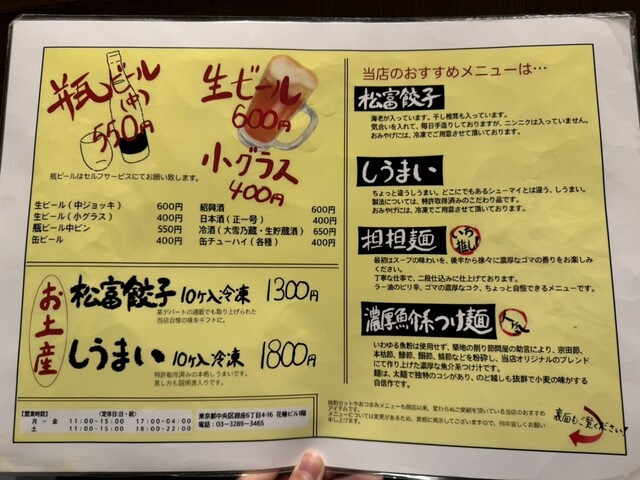 瓶ビール
(中)
550円
生ビール
600円
小グラス
400円
瓶ビールはセルフサービスにてお願い致します。
生ビール(中ジョッキ) 600円
生ビール(小グラス) 400円
瓶ビール中ビン 550円
缶ビール 400円
紹興酒 600円
日本酒(正一号) 400円
冷酒(大雪乃蔵・生貯蔵酒) 650円
缶チューハイ(各種) 400円
お土産
松富餃子 10ヶ入冷凍 1300円
某デパートの通販でも取り上げられた
当店自慢の味をギフトに。
しうまい 10ヶ入冷凍 1800円
特許取得済みの本格しうまいです。
蒸し方も説明書入りです。
【営業時間】 (定休日:日・祝)
月 ー 金 11:00-15:00 17:00-04:00
土 11:00-15:00 18:00-22:00
東京都中央区銀座6丁目4-16 花椿ビル1階
電話:03-3289-3465
当店のおすすめメニューは…
松富餃子
海老が入っています。干し椎茸も入っています。
気合いを入れて、毎日手造りしておりますが、ニンニクは入っていません。
おみやげには、冷凍でご用意させて頂いております。
しうまい
ちょっと違うしうまい。どこにでもあるシューマイとは違う、しうまい。
製法については、特許取得済みのこだわり品です。
おみやげには、冷凍でご用意させて頂いております。
担担麺 いち推し
最初はスープの味わいを、後半から徐々に濃厚なゴマの香りをお楽しみ
ください。
丁寧な仕事で、二段仕込みに仕上げております。
ラー油のピリ辛、ゴマの濃厚なコク、ちょっと自慢できるメニューです。
濃厚魚介系つけ麺 人気
いわゆる魚粉は使用せず、築地の削り節問屋の助言により、宗田節、
本枯節、鯵節、鰯節、鯖節などを粉砕し、当店オリジナルのブレンド
にて作り上げた濃厚な魚介系つけ汁です。
麺は、太麺で独特のコシがあり、のど越しも抜群で小麦の味がする
自信作です。
晩酌セットやおつまみメニューも開店以来、変わらぬご愛顧を頂いている当店のおすすめ
アイテムです。
メニューについては変更があるため、裏面に掲示してございますので、何卒宜しくお願い
申し上げます。
裏面もご覧ください!